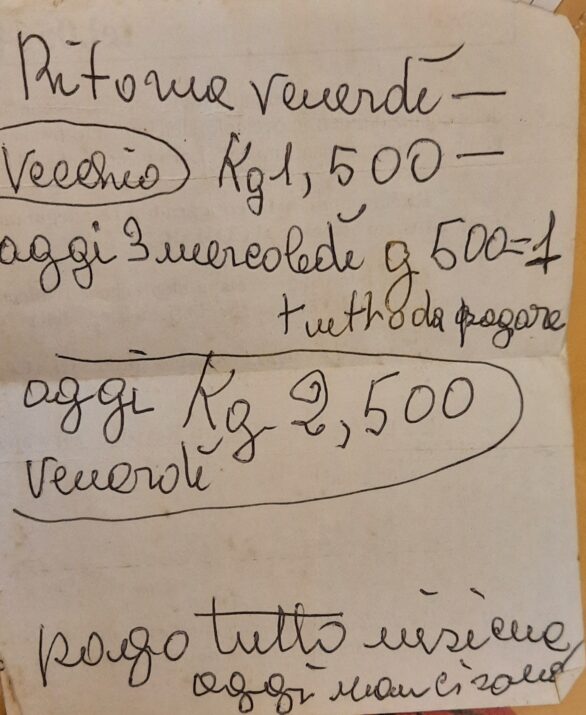 Ritorna venerdì —
Vecchio Kg 1,500 —
oggi 3 mercoledì g 500 = 1
tutto da pagare
oggi Kg 2,500
venerdì
pago tutto insieme
oggi non ci sono